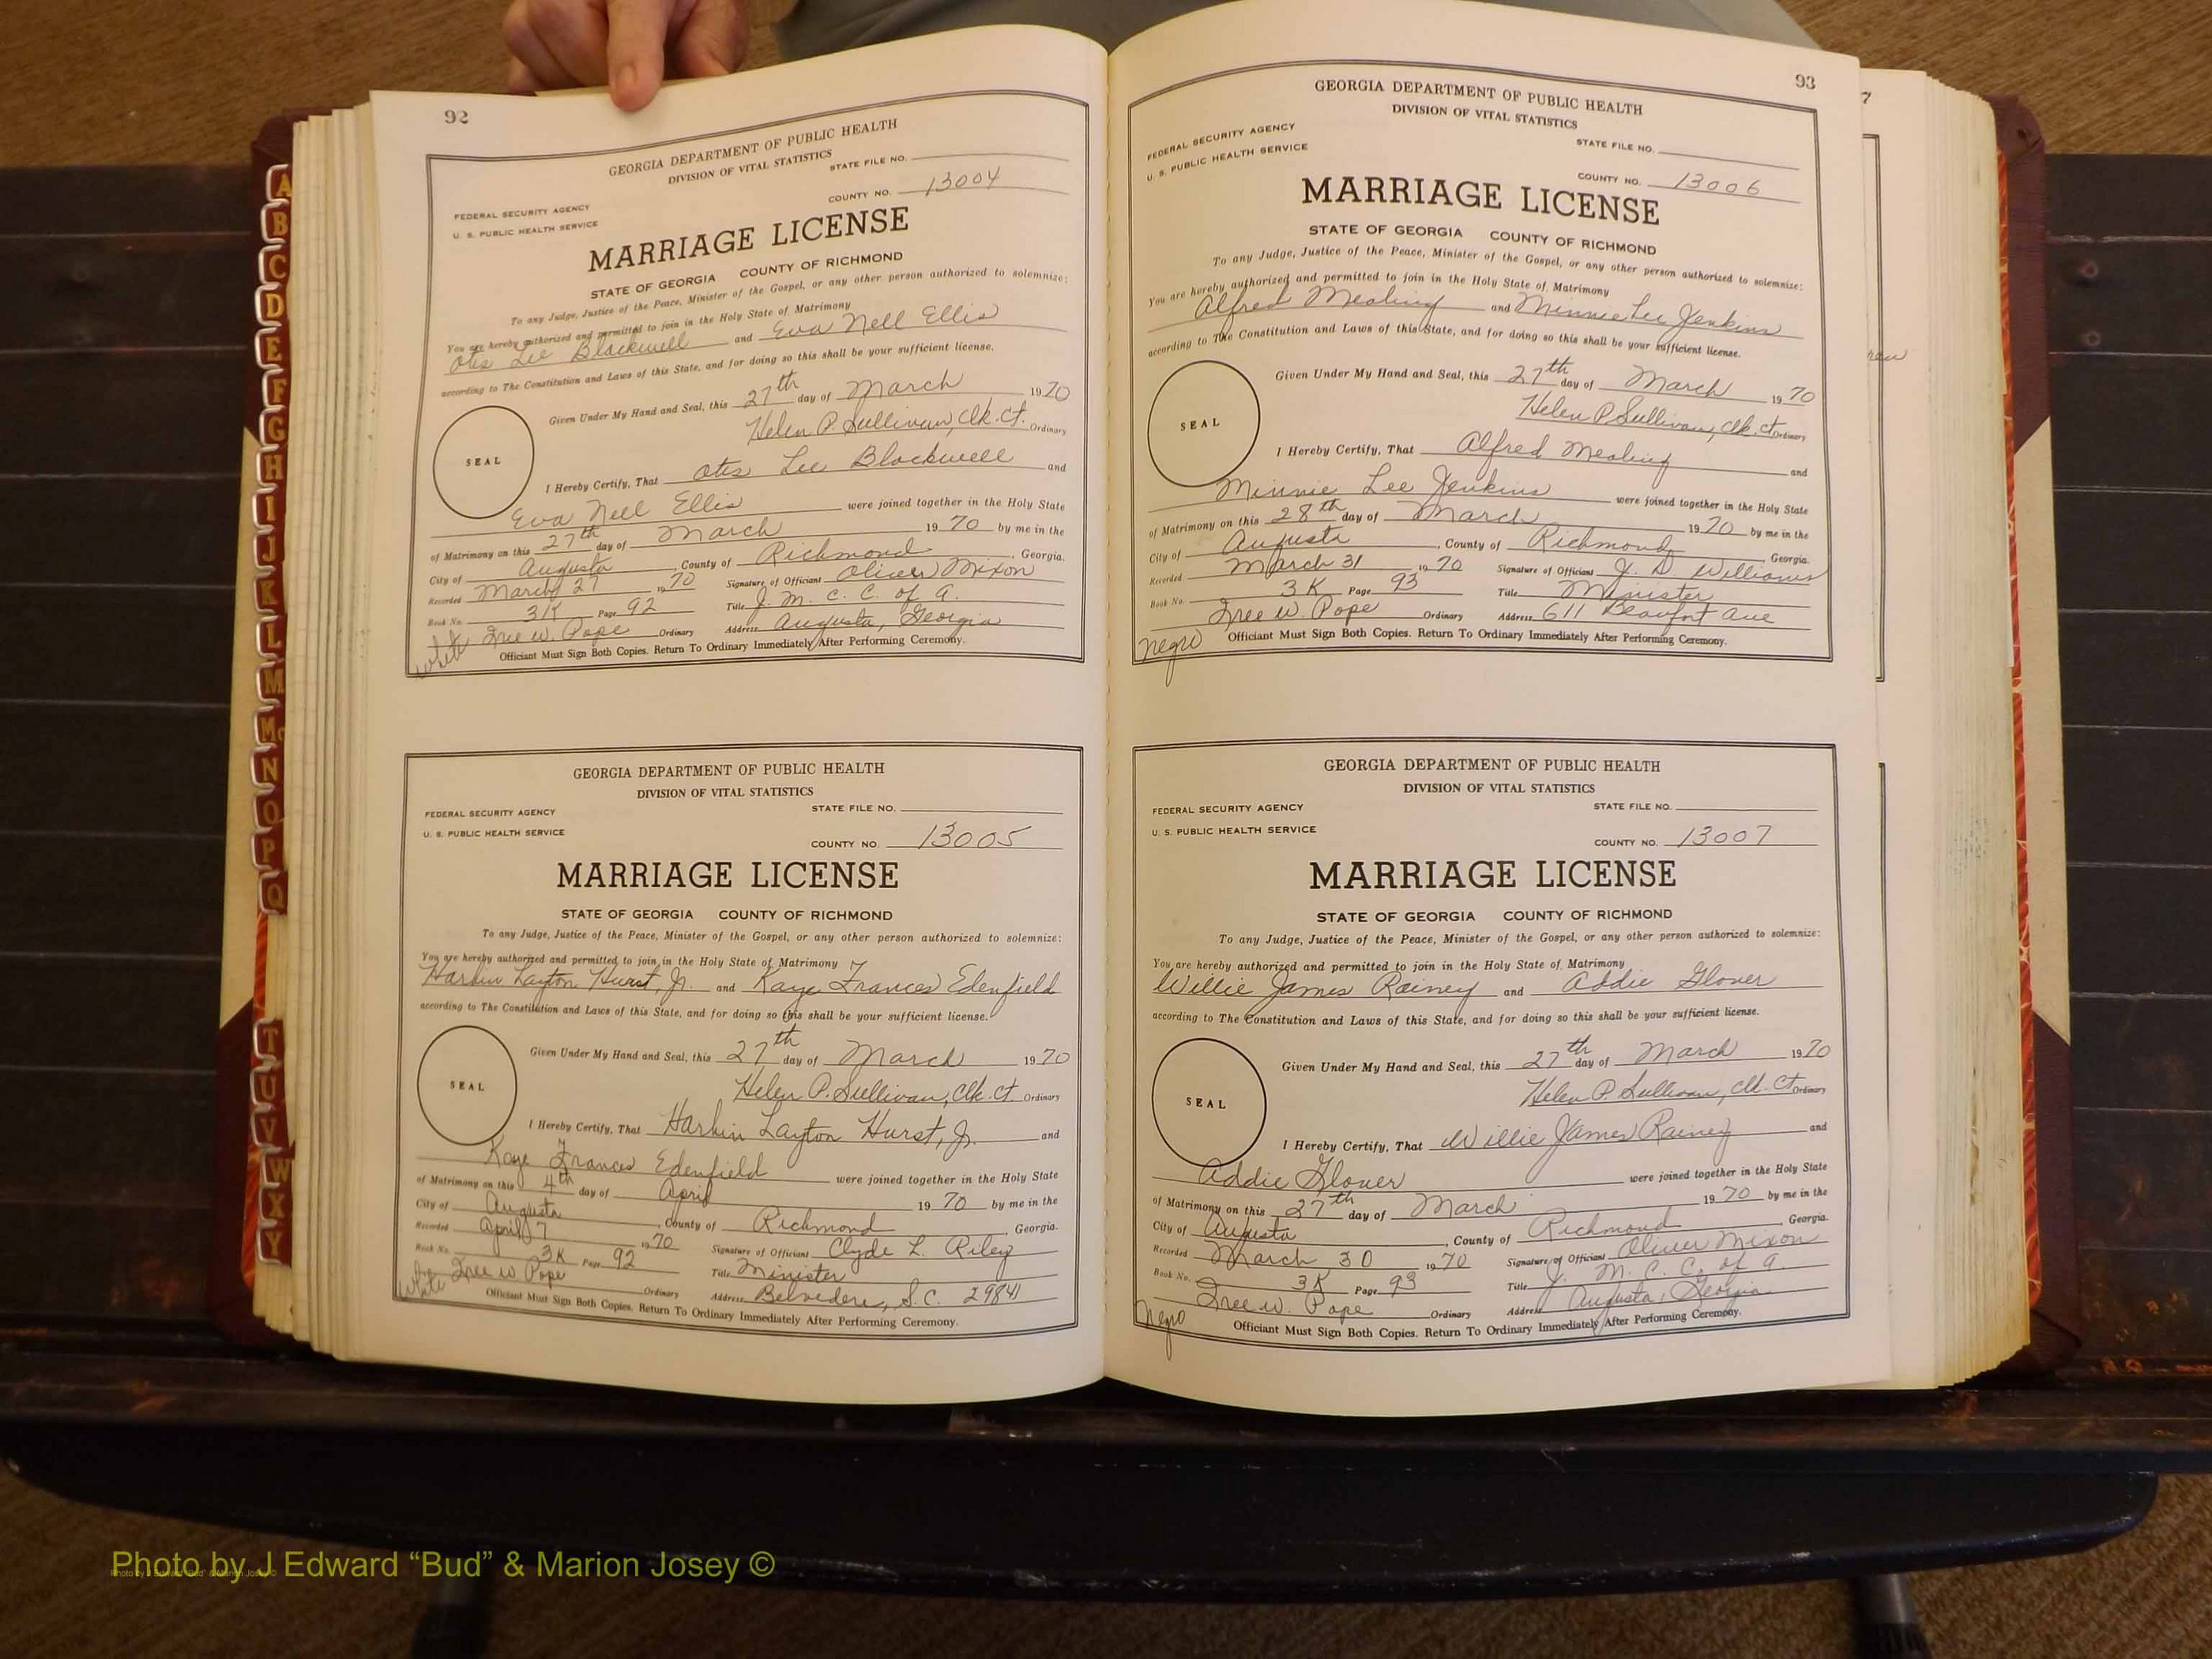 92
GEORGIA DEPARTMENT OF PUBLIC HEALTH
DIVISION OF VITAL STATISTICS
STATE FILE NO.
COUNTY NO. 13004
FEDERAL SECURITY AGENCY
U. S. PUBLIC HEALTH SERVICE
MARRIAGE LICENSE
STATE OF GEORGIA COUNTY OF RICHMOND
To any Judge, Justice of the Peace, Minister of the Gospel, or any other person authorized to solemnize:
You are hereby authorized and permitted to join in the Holy State of Matrimony
Otis Lee Blackwell and Eva Nell Ellis
according to The Constitution and Laws of this State, and for doing so this shall be your sufficient license.
Given Under My Hand and Seal, this 27th day of March 1970
Helen P. Sullivan, Clk. Ct. Ordinary
SEAL
I Hereby Certify, That Otis Lee Blackwell and
Eva Nell Ellis were joined together in the Holy State
of Matrimony on this 27th day of March 1970 by me in the
City of Augusta, County of Richmond, Georgia.
Recorded March 27 1970 Signature of Official Oliver Mixon
Book No. 3K Page 92 Title J. M. C. C. of A.
Inee W. Pope Ordinary Address Augusta, Georgia
White Officiant Must Sign Both Copies. Return To Ordinary Immediately After Performing Ceremony.
GEORGIA DEPARTMENT OF PUBLIC HEALTH
DIVISION OF VITAL STATISTICS
FEDERAL SECURITY AGENCY STATE FILE NO.
U. S. PUBLIC HEALTH SERVICE
COUNTY NO. 13005
MARRIAGE LICENSE
STATE OF GEORGIA COUNTY OF RICHMOND
To any Judge, Justice of the Peace, Minister of the Gospel, or any other person authorized to solemnize:
You are hereby authorized and permitted to join in the Holy State of Matrimony
Harbin Layton Hurst, Jr. and Kaye Frances Edenfield
according to The Constitution and Laws of this State, and for doing so this shall be your sufficient license.
Given Under My Hand and Seal, this 27th day of March 1970
Helen P. Sullivan, Clk. Ct. Ordinary
SEAL
I Hereby Certify, That Harbin Layton Hurst, Jr. and
Kaye Frances Edenfield were joined together in the Holy State
of Matrimony on this 4th day of April 1970 by me in the
City of Augusta, County of Richmond, Georgia.
Recorded April 7 1970 Signature of Official Clyde L. Riley
Book No. 3K Page 92 Title Minister
Inee W Pope Ordinary Address Belvedere, S.C. 29841
White Officiant Must Sign Both Copies. Return To Ordinary Immediately After Performing Ceremony.
93
GEORGIA DEPARTMENT OF PUBLIC HEALTH
DIVISION OF VITAL STATISTICS
FEDERAL SECURITY AGENCY
U. S. PUBLIC HEALTH SERVICE
STATE FILE NO.
COUNTY NO. 13006
MARRIAGE LICENSE
STATE OF GEORGIA COUNTY OF RICHMOND
To any Judge, Justice of the Peace, Minister of the Gospel, or any other person authorized to solemnize:
You are hereby authorized and permitted to join in the Holy State of Matrimony
Alfred Mealing and Minnie Lee Jenkins
according to The Constitution and Laws of this State, and for doing so this shall be your sufficient license.
Given Under My Hand and Seal, this 27th day of March 1970
Helen P. Sullivan, Clk. Ct. Ordinary
SEAL
I Hereby Certify, That Alfred Mealing and
Minnie Lee Jenkins were joined together in the Holy State
of Matrimony on this 28th day of March 1970 by me in the
City of Augusta, County of Richmond, Georgia.
Recorded March 31 1970 Signature of Official J. D. Williams
Book No. 3K Page 93 Title Minister
Inee W. Pope Ordinary Address 611 Beaufort Ave
Negro Officiant Must Sign Both Copies. Return To Ordinary Immediately After Performing Ceremony.
GEORGIA DEPARTMENT OF PUBLIC HEALTH
DIVISION OF VITAL STATISTICS
FEDERAL SECURITY AGENCY STATE FILE NO.
U. S. PUBLIC HEALTH SERVICE
COUNTY NO. 13007
MARRIAGE LICENSE
STATE OF GEORGIA COUNTY OF RICHMOND
To any Judge, Justice of the Peace, Minister of the Gospel, or any other person authorized to solemnize:
You are hereby authorized and permitted to join in the Holy State of Matrimony
Willie James Rainey and Addie Glover
according to The Constitution and Laws of this State, and for doing so this shall be your sufficient license.
Given Under My Hand and Seal, this 27th day of March 1970
Helen P. Sullivan, Clk. Ct. Ordinary
SEAL
I Hereby Certify, That Willie James Rainey and
Addie Glover were joined together in the Holy State
of Matrimony on this 27th day of March 1970 by me in the
City of Augusta, County of Richmond, Georgia.
Recorded March 30 1970 Signature of Official Oliver Mixon
Book No. 3K Page 93 Title J. M. C. C. of A.
Inee W. Pope Ordinary Address Augusta, Georgia
Negro Officiant Must Sign Both Copies. Return To Ordinary Immediately After Performing Ceremony.
7
A
B
C
D
E
F
G
H
I
J
K
L
M
Mc
N
O
P
Q
T
U
V
W
X
Y
Photo by J Edward “Bud” & Marion Josey ©
Photo by J Edward “Bud” & Marion Josey ©